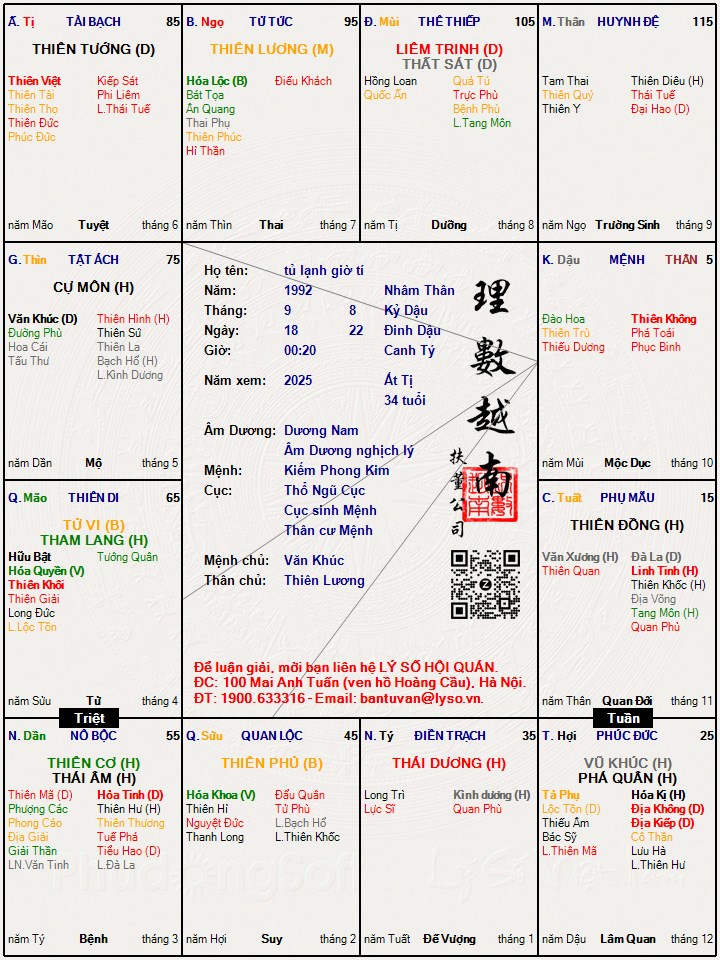 Ấ. Tị TÀI BẠCH 85
THIÊN TƯỚNG (D)
Thiên Việt Kiếp Sát
Thiên Tài Phi Liêm
Thiên Thọ L.Thái Tuế
Thiên Đức
Phúc Đức
năm Mão Tuyệt tháng 6
B. Ngọ TỬ TỨC 95
THIÊN LƯƠNG (M)
Hóa Lộc (B) Điếu Khách
Bát Tọa
Ân Quang
Thai Phụ
Thiên Phúc
Hỉ Thần
năm Thìn Thai tháng 7
Đ. Mùi THÊ THIẾP 105
LIÊM TRINH (D)
THẤT SÁT (D)
Hồng Loan Quả Tú
Quốc Ấn Trực Phù
Bệnh Phù
L.Tang Môn
năm Tị Dưỡng tháng 8
M. Thân HUYNH ĐỆ 115
Tam Thai Thiên Diêu (H)
Thiên Quý Thái Tuế
Thiên Y Đại Hao (D)
năm Ngọ Trường Sinh tháng 9
G. Thìn TẬT ÁCH 75
CỰ MÔN (H)
Văn Khúc (D) Thiên Hình (H)
Đường Phù Thiên Sứ
Hoa Cái Thiên La
Tấu Thư Bạch Hổ (H)
L.Kình Dương
năm Dần Mộ tháng 5
Họ tên: tủ lạnh giờ tí
Năm: 1992 Nhâm Thân
Tháng: 9 8 Kỷ Dậu
Ngày: 18 22 Đinh Dậu
Giờ: 00:20 Canh Tý
Năm xem: 2025 Ất Tị
34 tuổi
Âm Dương: Dương Nam
Âm Dương nghịch lý
Mệnh: Kiếm Phong Kim
Cục: Thổ Ngũ Cục
Cục sinh Mệnh
Thân cư Mệnh
Mệnh chủ: Văn Khúc
Thân chủ: Thiên Lương
理數越南
扶董公司
Để luận giải, mời bạn liên hệ LÝ SỐ HỘI QUÁN.
ĐC: 100 Mai Anh Tuấn (ven hồ Hoàng Cầu), Hà Nội.
ĐT: 1900.633316 - Email: bantuvan@lyso.vn.
K. Dậu MỆNH THÂN 5
Đào Hoa Thiên Không
Thiên Trù Phá Toái
Thiếu Dương Phục Binh
năm Mùi Mộc Dục tháng 10
Q. Mão THIÊN DI 65
TỬ VI (B)
THAM LANG (H)
Hữu Bật Tướng Quân
Hóa Quyền (V)
Thiên Khôi
Thiên Giải
Long Đức
L.Lộc Tồn
năm Sửu Tử tháng 4
C. Tuất PHỤ MẪU 15
THIÊN ĐỒNG (H)
Văn Xương (H) Đà La (D)
Thiên Quan Linh Tinh (H)
Thiên Khốc (H)
Địa Võng
Tang Môn (H)
Quan Phủ
năm Thân Quan Đới tháng 11
Triệt
Tuần
N. Dần NÔ BỘC 55
THIÊN CƠ (H)
THÁI ÂM (H)
Thiên Mã (D) Hỏa Tinh (D)
Phượng Các Thiên Hư (H)
Phong Cáo Thiên Thương
Địa Giải Tuế Phá
Giải Thần Tiểu Hao (D)
LN.Văn Tinh L.Đà La
năm Tý Bệnh tháng 3
Q. Sửu QUAN LỘC 45
THIÊN PHỦ (B)
Hóa Khoa (V) Đẩu Quân
Thiên Hỉ Tử Phù
Nguyệt Đức L.Bạch Hổ
Thanh Long L.Thiên Khốc
năm Hợi Suy tháng 2
N. Tý ĐIỀN TRẠCH 35
THÁI DƯƠNG (H)
Long Trì Kình dương (H)
Lực Sĩ Quan Phù
năm Tuất Đế Vượng tháng 1
T. Hợi PHÚC ĐỨC 25
VŨ KHÚC (H)
PHÁ QUÂN (H)
Tả Phụ Hóa Kị (H)
Lộc Tồn (D) Địa Không (D)
Thiếu Âm Địa Kiếp (D)
Bác Sỹ Cô Thần
L.Thiên Mã Lưu Hà
L.Thiên Hư
năm Dậu Lâm Quan tháng 12